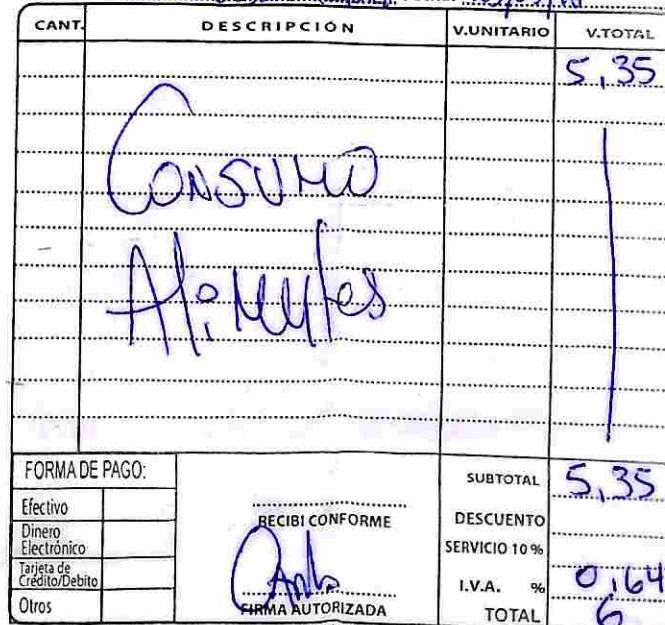 CANT. DESCRIPCIÓN V.UNITARIO V.TOTAL
5,35
CONSUMO
Alimentos
FORMA DE PAGO:
Efectivo
Dinero
Electrónico
Tarjeta de
Crédito/Debito
Otros
RECIBI CONFORME
FIRMA AUTORIZADA
SUBTOTAL 5,35
DESCUENTO
SERVICIO 10 %
I.V.A. % 0,64
TOTAL 6